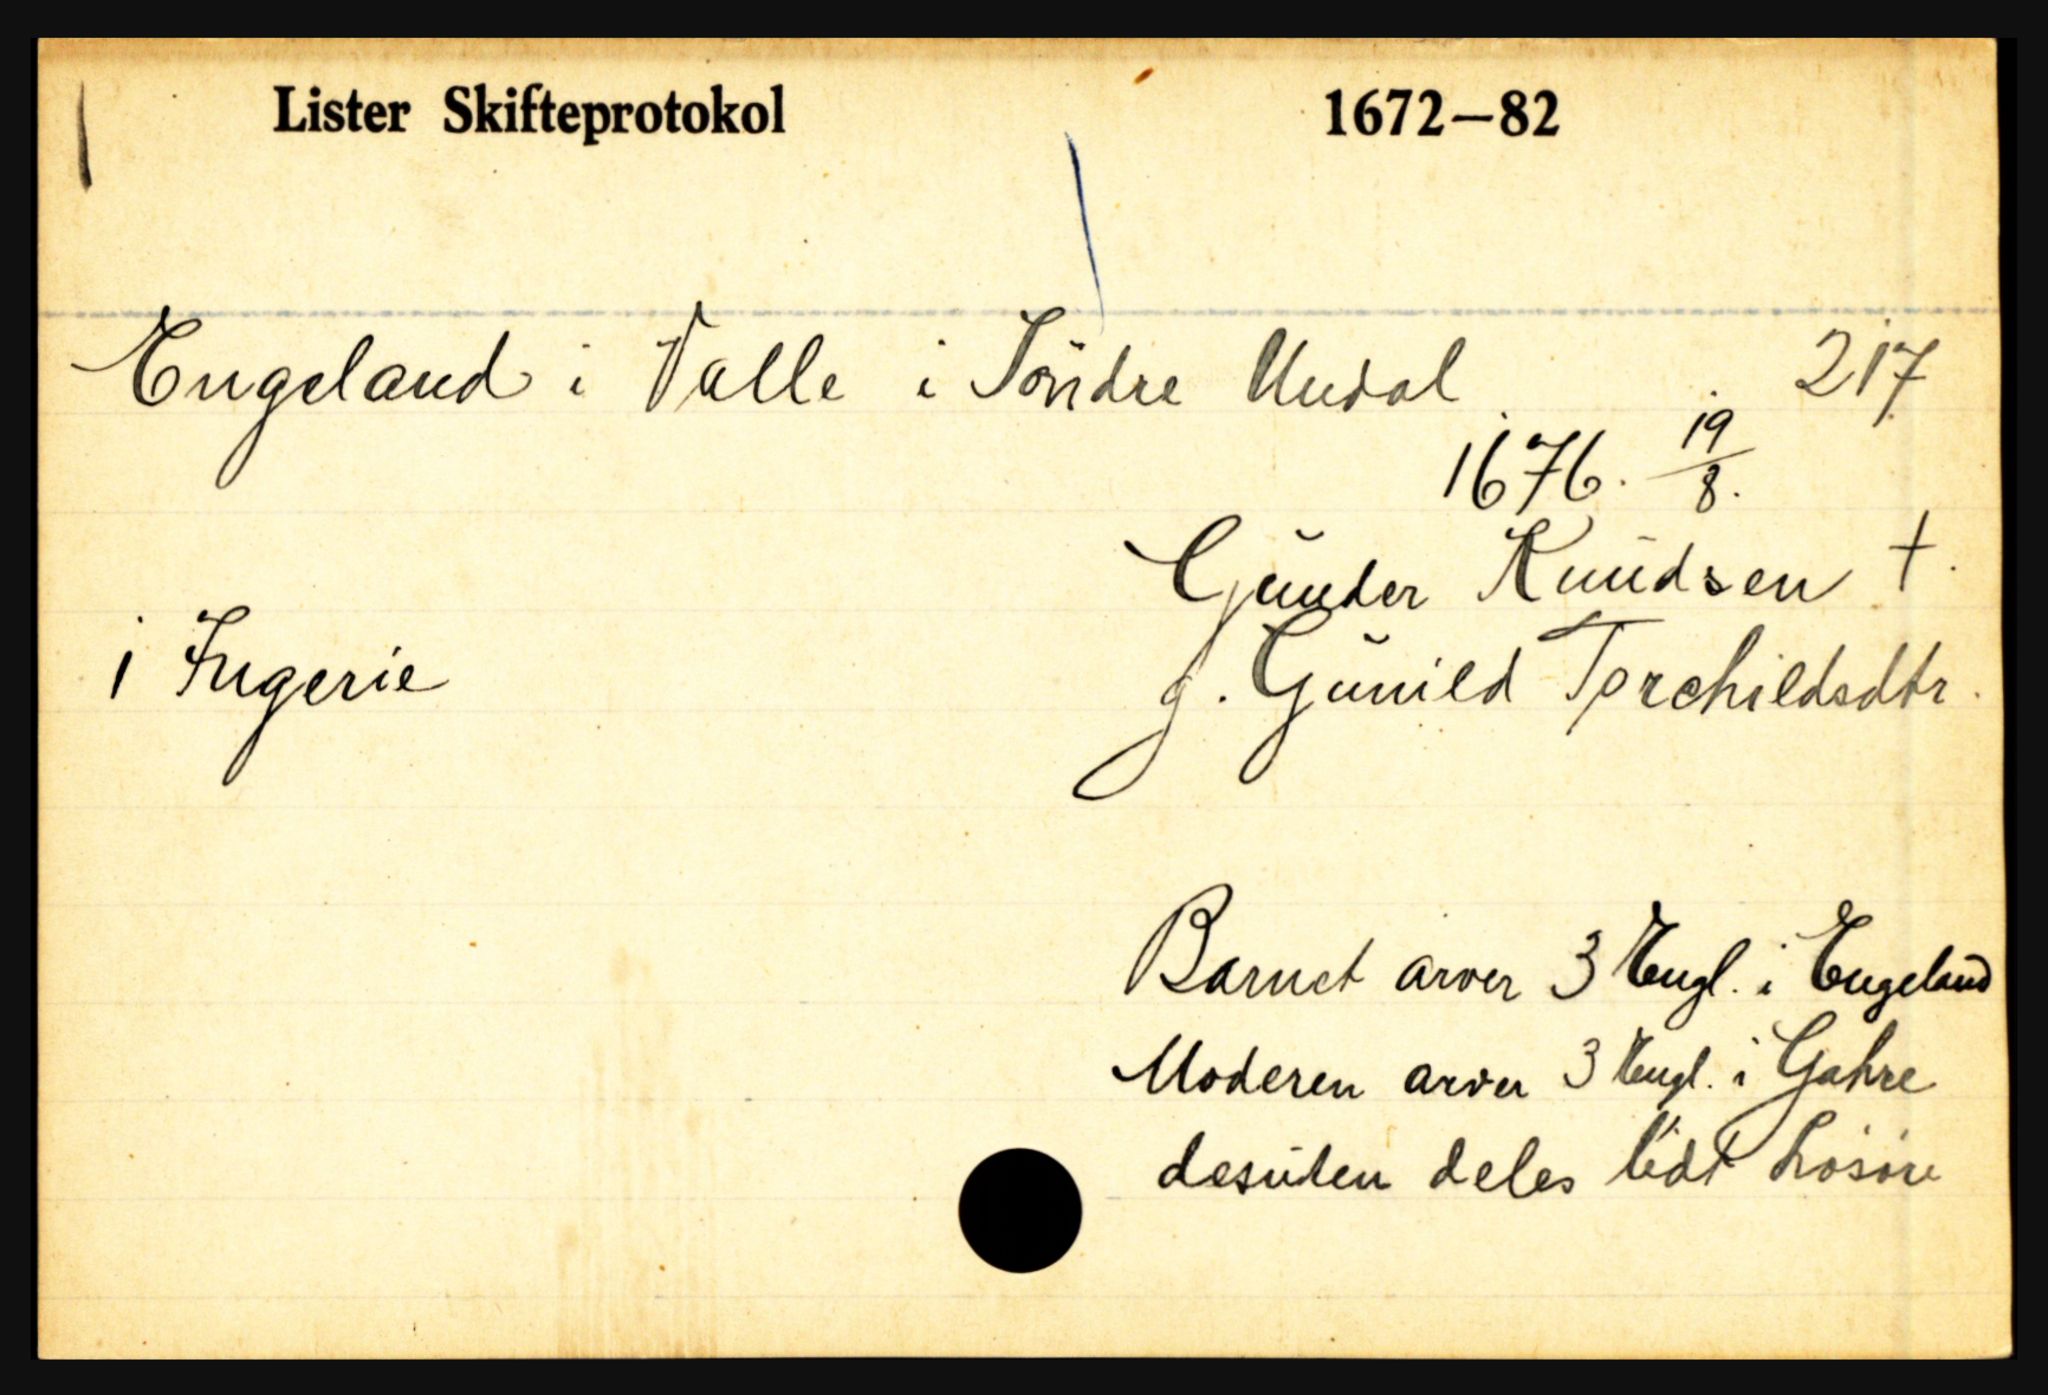 Lister Skifteprotokol 1672–82
Engeland i Valle i Söndre Undal 217
1676. 19/8.
Günder Knüdsen †.
i Ingerie g. Günild Torchildsdtr.
Barnet arver 3 Engl. i Engeland
Moderen arver 3 Engl. i Gahre
desüten deles lidt Lösöre